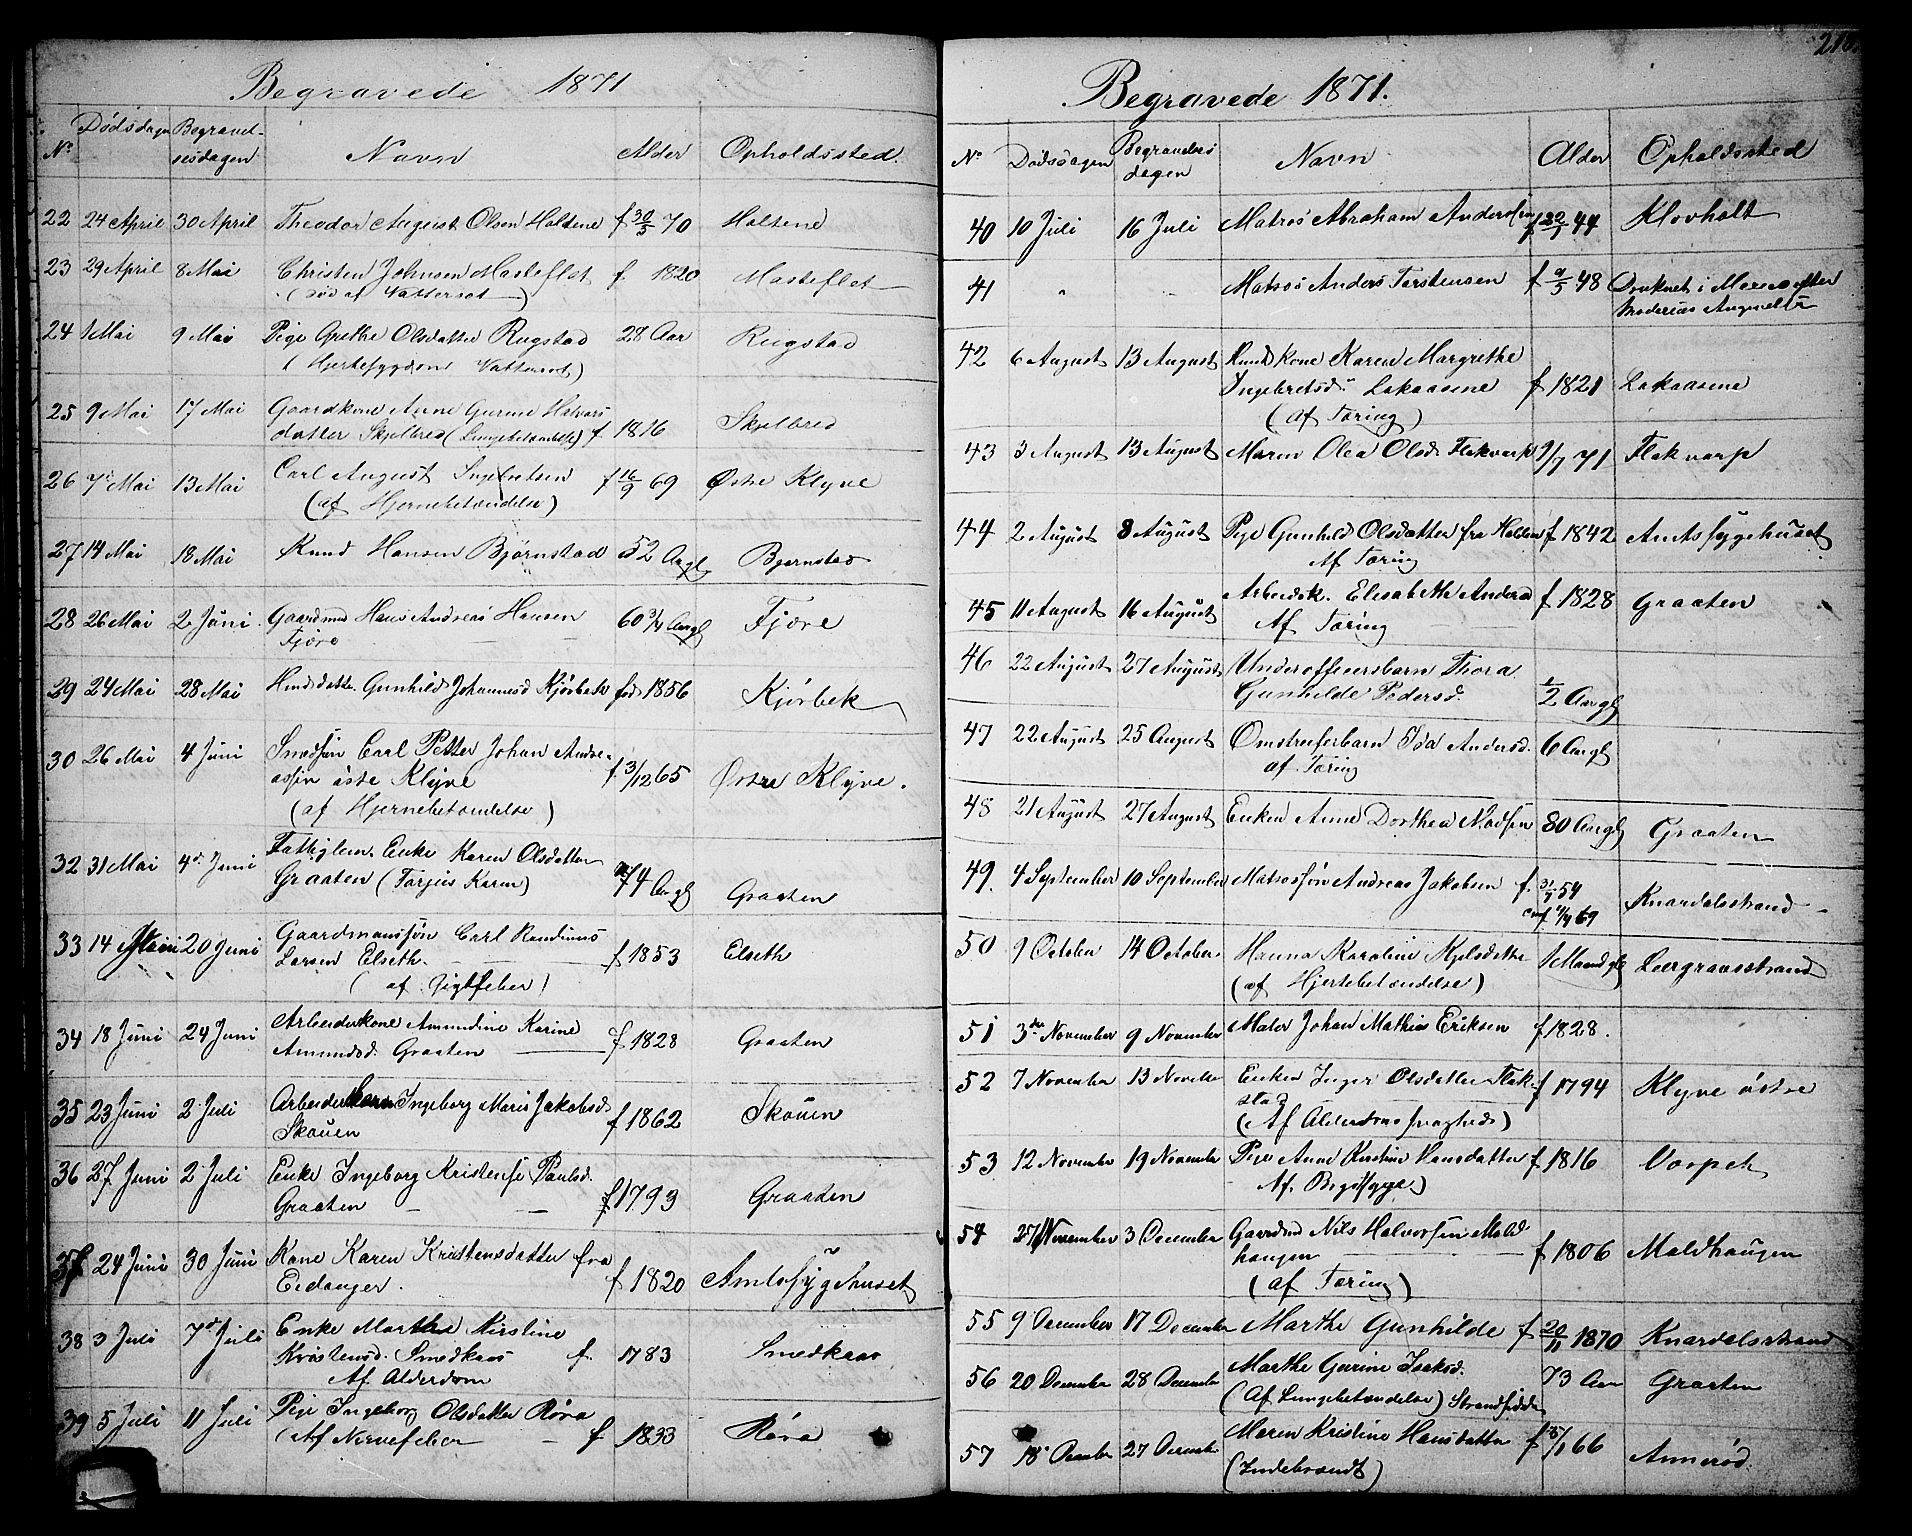 Begravede 1871
No Dödsdagen Begravelsesdagen Navn Alder Opholdssted.
22 24 April 30 April Theodor August Olsen Holtene f 30/5 70 Holtene
23 29 April 8 Mai Christen Johnsen Masteflot f 1820 Masteflot
(död af Vattersot)
24 1 Mai 9 Mai Pige Grethe Olsdatter Rugstad 28 Aar Rugstad
(Hjertesygdom Vattersot)
25 9 Mai 17 Mai Gaardkone Anne Gurine Halvors
datter Skjelbred (Lungebetændelse) f 1816 Skjelbred
26 7de Mai 13 Mai Carl August Ingebretsen f 16/9 69 Østre Klyve
(af Hjernebetændelse)
27 14 Mai 18 Mai Knud Hansen Bjørnstad 52 Aargl Bjørnstad
28 26 Mai 2 Juni Gaardmd Hans Andreas Hansen 60 3/4 Aargl Fjære
Fjöre
29 24 Mai 28 Mai Husmdatter Gunhild Johannesd Kjörbek föd 1856 Kjörbek
30 26 Mai 4 Juni Smedsön Carl Petter Johan Andre-
assen öste Klyve f 3/12 65 Østre Klyve.
(af Hjernebetændelse)
32 31 Mai 4de Juni Fattiglem. Enke Karen Olsdatter
Graaten (Torjus Karen) 74 Aargl Graaten
33 14 Juni 20 Juni Gaardmanssön Carl Randinus
Larsen Elseth. f 1853 Elseth
(af Gigtfeber)
34 18 Juni 24 Juni Arbeiderkone Amundine Karine
Amundsd. Graaten f 1828 Graaten
35 23 Juni 2 Juli Arbeiderbarn Ingeborg Maria Jakobsd.
Skouen f 1862 Skouen
36 27 Juni 2 Juli Enke Ingeborg Kristense Paulsd.
Graaten f 1793 Graaden
37 24 Juni 30 Juni Kone Karen Kristensdatter fra
Eidanger. f 1820 Amtssygehuset
38 3 Juli 7de Juli Enke Marthe Kirstine
Kristensd. Smedkaas f. 1783 Smedkaas
Af Alderdom
39 5 Juli 11 Juli Pige Ingeborg Olsdatter Röra
(Af Nervefeber f 1833 Röra
216.
Begravede 1871.
No Dødsdagen Begravelsesdagen Navn Alder Opholdssted
40 10 Juli 16 Juli Matros Abraham Andersen f 22/7 44 Klovholt
41 " " Matros Anders Torstensen f 9/5 48 Druknet i
42 6 August 13 August Kone Karen Margrethe
Ingebretsd. Lakaasene f 1821 Lakaasene
(af Tæring)
43 3 August 13 August Maren Olea Olsd. Flakvarp 9/7 71 Flakvarp
44 2 August 8 August Pige Gunhild Olsdatter fra Holden f 1842 Amtssygehuset
Af Tæring
45 11 August 16 August Arbeidsk. Elisabeth Andersd f 1828 Graaten
Af Tæring
46 22 August 27 August Underofficersbarn Thora
Gunhilde Pedersd. 1/2 Aargl
47 22 August 25 August Omstreiferbarn Ida Andersd. 6 Aargl
af. Tæring
48 21 August 27 August Enken Anne Dorthea Madsen 80 Aargl Graaten
49. 4 September 10 September Matrossön Andreas Jakobsen f. 31/7 54
conf 4/4 69 Knardalsstrand
50 9 October 14 October Hanna Karoline Kjelsdatter 1 Maand gl Leergravsstrand
(af Hjertebetændelse)
51 3die November 9 November Maler Johan Mathias Eriksen f 1828.
52 7 November 13 Novebr Enken Inger Olsdatter Flak-
stad f 1794 Klyve östre
(Af Alderdomssvaghed)
53 12 November 19 November Pige Anne Kirstine Hansdatter f 1816 Vorpeh
Af. Brystsyge)
54 27 November 3 December Gaardmd Nils Halvorsen Mold
haugen f 1806 Moldhaugen
(af Tæring)
55 9 December 17 December Marthe Gunhilde f 20/11 1870 Knardalsstrand
56 20 December 28 December Marthe Gurine Isaksd. 73 Aar Graaten
(Af Lungebetændelse) Strandsidde
57 18 December 27 December Maren Kristine Hansdatter f 8/1 66 Annerød.
(Indebrændt)